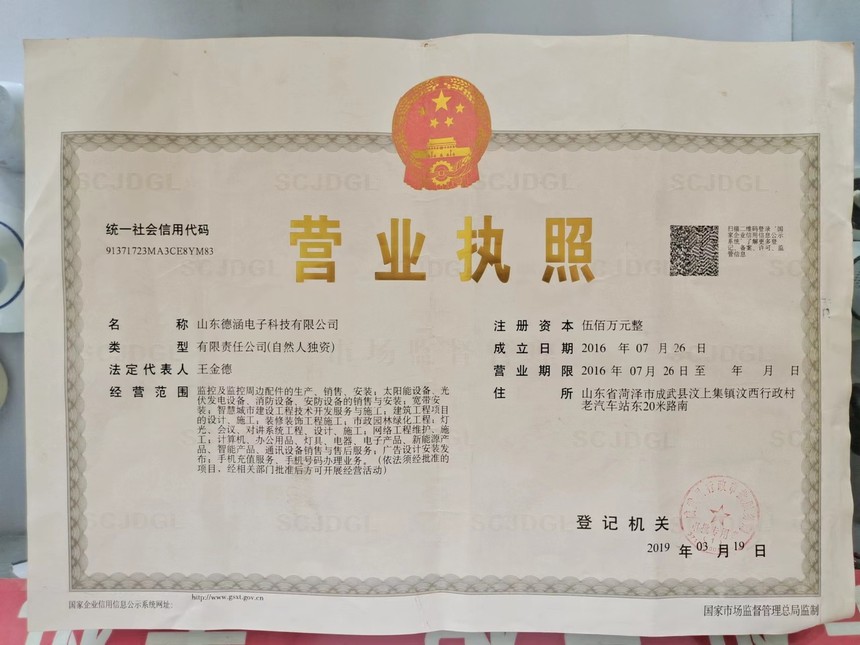 营业执照
统一社会信用代码
91371723MA3CE8YM83
扫描二维码登录‘国
家企业信用信息公示
系统’了解更多登
记、备案、许可、监
管信息
名 称 山东德涵电子科技有限公司
类 型 有限责任公司(自然人独资)
法定代表人 王金德
经营范围 监控及监控周边配件的生产、销售、安装；太阳能设备、光
伏发电设备、消防设备、安防设备的销售与安装；宽带安
装；智慧城市建设工程技术开发服务与施工；建筑工程项目
的设计、施工；装修装饰工程施工；市政园林绿化工程；灯
光、会议、对讲系统工程、设计、施工；网络工程维护、施
工；计算机、办公用品、灯具、电器、电子产品、新能源产
品、智能产品、通讯设备销售与售后服务；广告设计安装发
布；手机充值服务、手机号码办理业务。（依法须经批准的
项目，经相关部门批准后方可开展经营活动）
注册资本 伍佰万元整
成立日期 2016 年 07 月 26 日
营业期限 2016 年 07 月 26 日至 年 月 日
住 所 山东省菏泽市成武县汶上集镇汶西行政村
老汽车站东20米路南
登记机关
2019 年 03 月 19 日
国家企业信用信息公示系统网址:
http://www.gsxt.gov.cn
国家市场监督管理总局监制